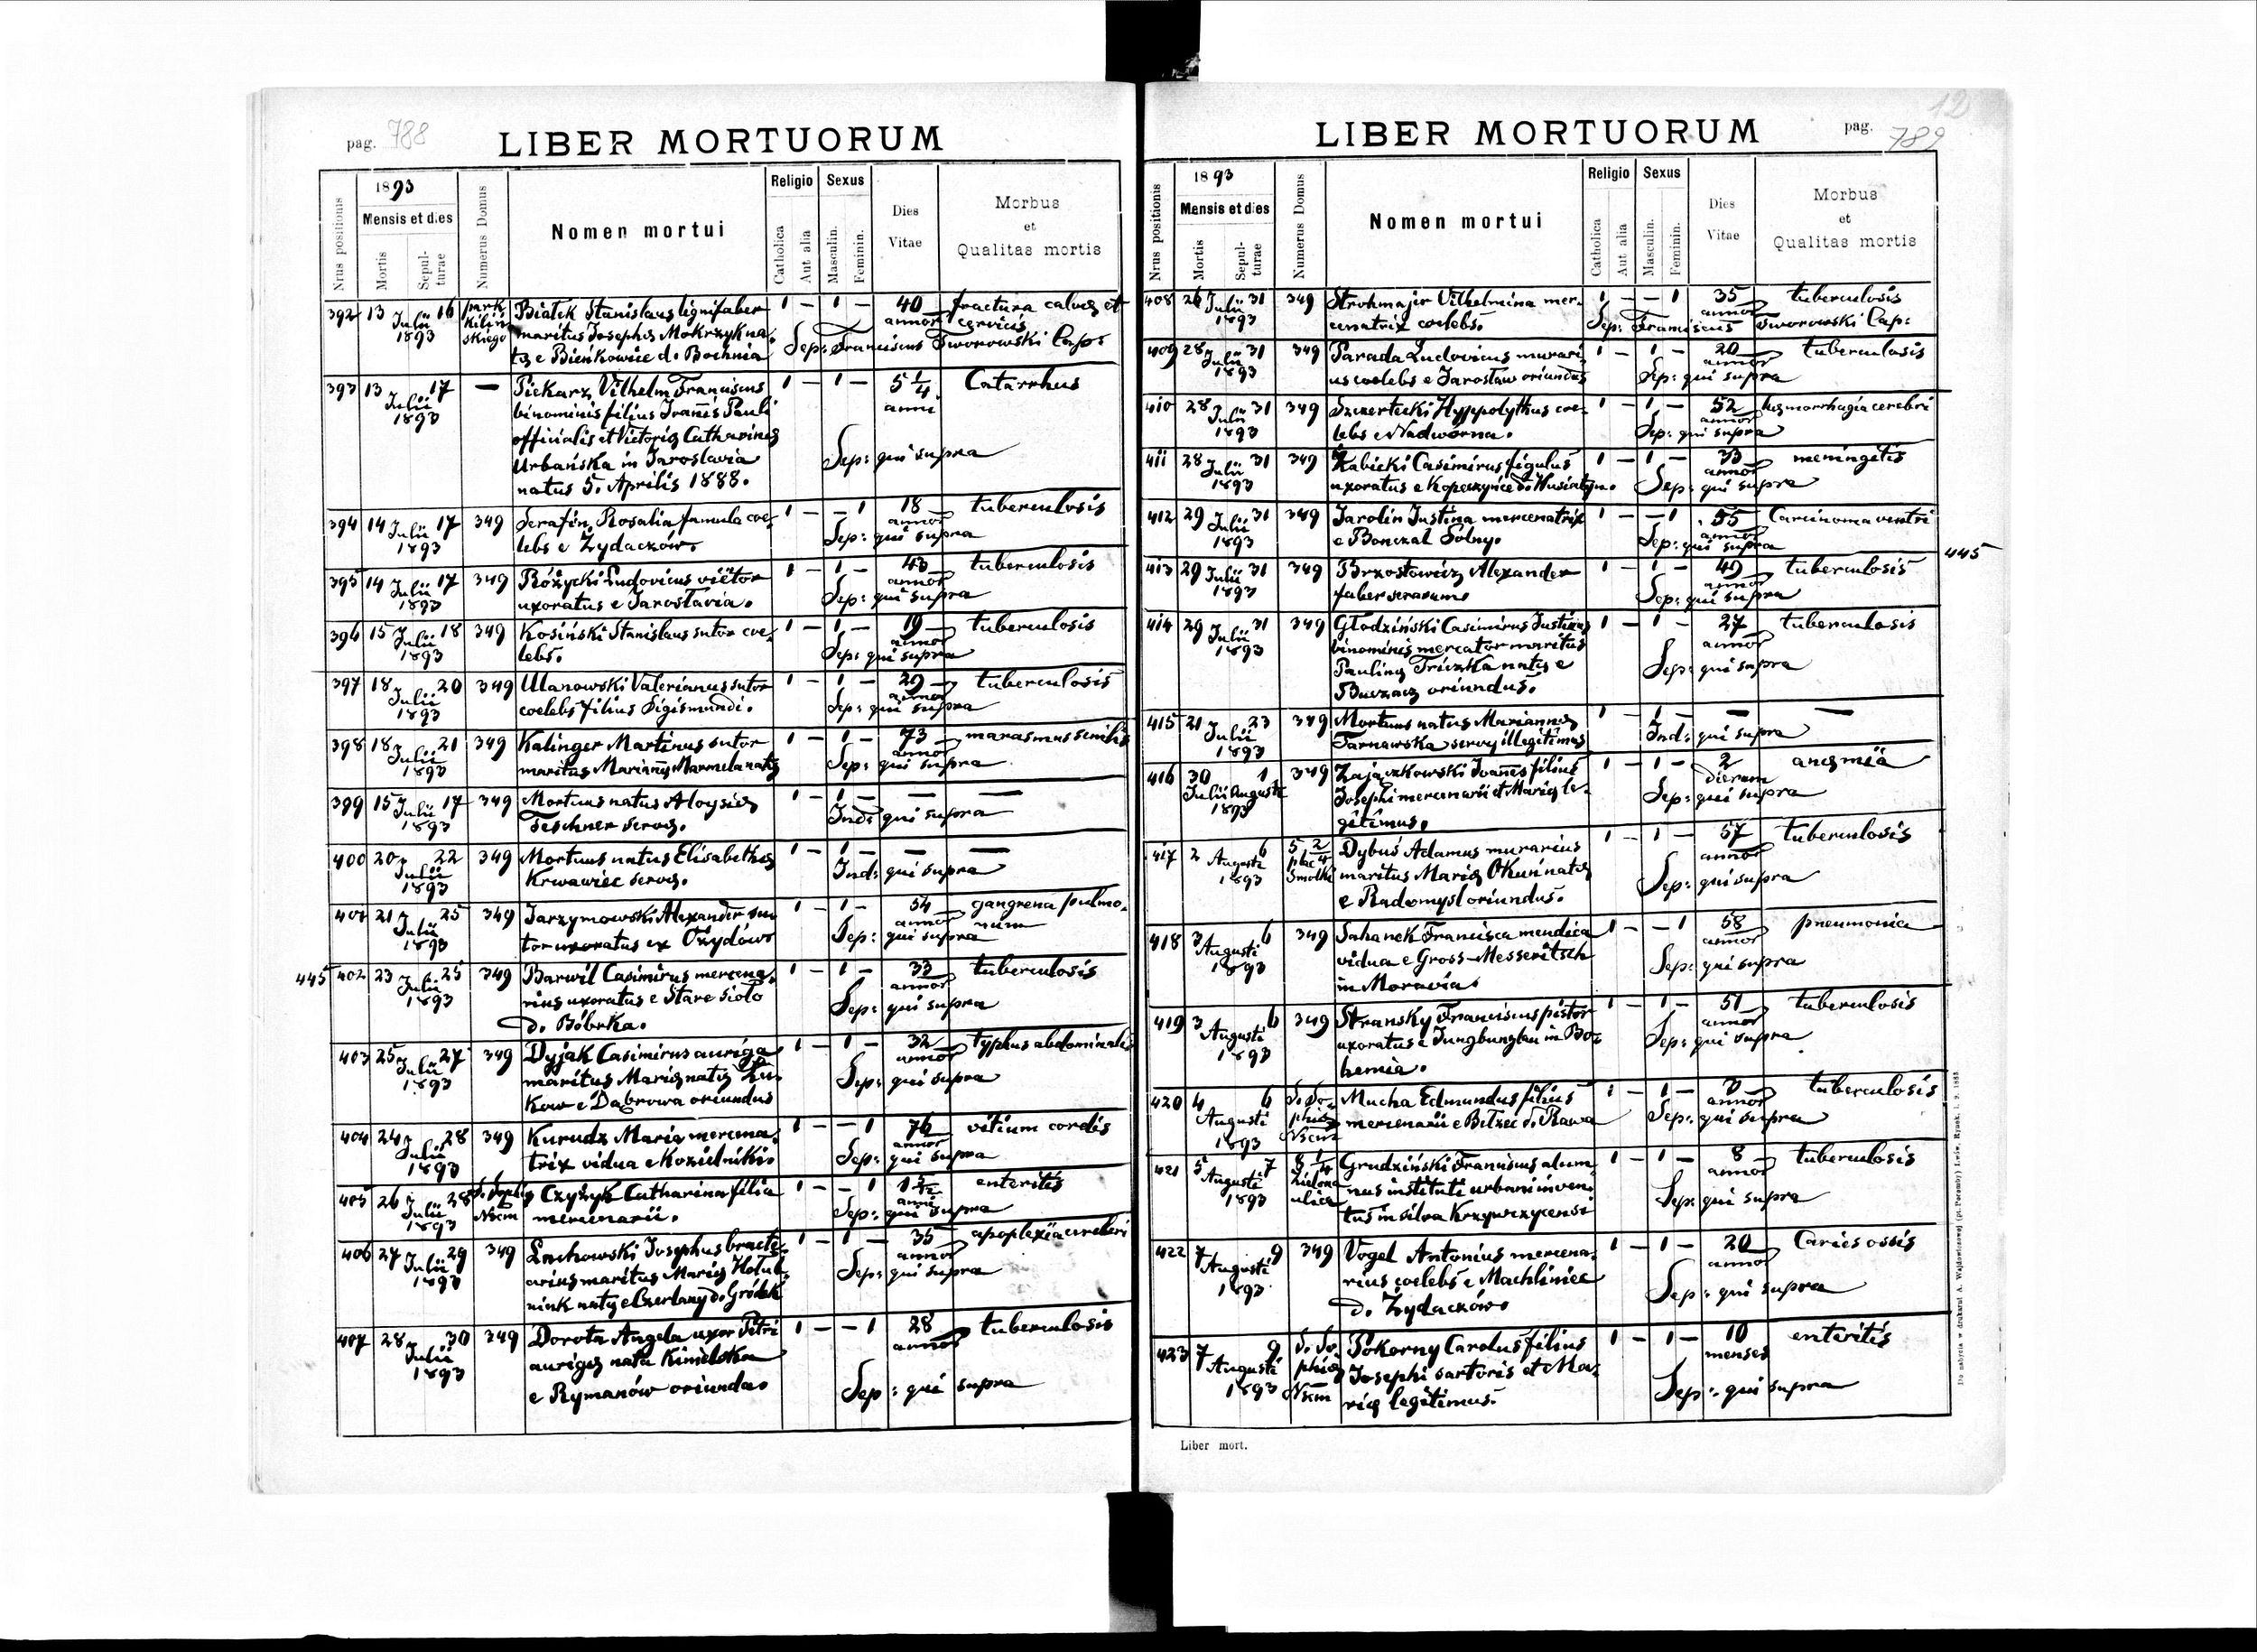 pag. 788 LIBER MORTUORUM
Nrus positionis
1893
Mensis et dies
Mortis
Sepulturae
Numerus Domus
Nomen mortui
Religio
Catholica
Aut alia
Sexus
Masculin.
Feminin.
Dies Vitae
Morbus et Qualitas mortis
392 13 Julii 16 1893 park Kilińskiego Białek Stanislaus lignifaber 1 — 1 — 40 annor fractura calvae et cervicis
maritus Josephae Mokrzyk na-
tae e Bieńkowice d. Bochnia Sep: Franciscus Tworowski Cap:
393 13 Julii 17 1893 — Piekarz Vilhelm Franciscus 1 — 1 — 5 1/4 anni Catarrhus
binominis filius Joannis Pauli
officialis et Victoriae Catharinae
Urbańska in Jaroslavia Sep: qui supra
natus 5. Aprilis 1888.
394 14 Julii 17 1893 349 Serafin Rosalia famula coe- 1 — — 1 18 annor tuberculosis
lebs e Żydaczów. Sep: qui supra
395 14 Julii 17 1893 349 Różycki Ludovicus viëtor 1 — 1 — 43 annor tuberculosis
uxoratus e Jarostavia. Sep: qui supra
396 15 Julii 18 1893 349 Kosiński Stanislaus sutor coe- 1 — 1 — 19 annor tuberculosis
lebs. Sep: qui supra
397 18 Julii 20 1893 349 Ulanowski Valerianus sutor 1 — 1 — 29 annor tuberculosis
coelebs filius Sigismundi. Sep: qui supra
398 18 Julii 21 1893 349 Kalinger Martinus sutor 1 — 1 — 73 annor marasmus senilis
maritus Mariannae Marmela natae Sep: qui supra
399 15 Julii 17 1893 349 Mortuus natus Aloysiae 1 — 1 — — —
Teschner servae. Ind: qui supra
400 20 Julii 22 1893 349 Mortuus natus Elisabethae 1 — 1 — — —
Krwawiec servae. Ind: qui supra
401 21 Julii 25 1893 349 Jarzymowski Alexander su- 1 — 1 — 54 annor gangrena pulmo-
tor uxoratus ex Ożydów Sep: qui supra num
445 402 23 Julii 25 1893 349 Barwil Casimirus mercena- 1 — 1 — 33 annor tuberculosis
rius uxoratus e Stare sioło Sep: qui supra
d. Bóbrka.
403 25 Julii 27 1893 349 Dyjak Casimirus auriga 1 — 1 — 32 annor typhus abdominalis
maritus Mariae natae Żu-
kow e Dąbrowa oriundus Sep: qui supra
404 24 Julii 28 1893 349 Kurudz Maria mercena- 1 — — 1 76 annor vitium cordis
trix vidua e Kozielniki. Sep: qui supra
405 26 Julii 28 1893 S. Sophiae Czyżyk Catharina filia 1 — — 1 enteritis
mercenarii. Sep: qui supra
406 27 Julii 29 1893 349 Lachowski Josephus bracte- 1 — 1 — 35 annor apoplexia cerebri
arius maritus Mariae Hołub-
nink natae e Czerlany d. Gródek Sep: qui supra
407 28 Julii 30 1893 349 Dorota Angela uxor Petri 1 — — 1 28 annor tuberculosis
aurigae nata
e Rymanów oriunda. Sep: qui supra
LIBER MORTUORUM pag. 789
12
Nrus positionis
1893
Mensis et dies
Mortis
Sepulturae
Numerus Domus
Nomen mortui
Religio
Catholica
Aut alia
Sexus
Masculin.
Feminin.
Dies Vitae
Morbus et Qualitas mortis
408 26 Julii 31 1893 349 Strohmajer Vilhelmina mer- 1 — — 1 35 annor tuberculosis
cenatrix coelebs. Sep: Franciscus Tworowski Cap:
409 28 Julii 31 1893 349 Parada Ludovicus murari- 1 — 1 — 20 annor tuberculosis
us coelebs e Jarosław oriundus Sep: qui supra
410 28 Julii 31 1893 349 Szczertecki Hyppolythus coe- 1 — 1 — 52 annor haemorrhagia cerebri
lebs e Nadworna. Sep: qui supra
411 28 Julii 31 1893 349 Żabicki Casimirus figulus 1 — 1 — 33 annor meningitis
uxoratus e Kopeczyńce d. Husiatyn. Sep: qui supra
412 29 Julii 31 1893 349 Jarolin Justina mercenatrix 1 — — 1 55 annor Carcinoma ventri
e Bonczal Dolny. Sep: qui supra
413 29 Julii 31 1893 349 Brzostowicz Alexander 1 — 1 — 49 annor tuberculosis 445
faber serarum Sep: qui supra
414 29 Julii 31 1893 349 Głodziński Casimirus Justinus 1 — 1 — 27 annor tuberculosis
binominis mercator maritus
Paulinae Triczka natae e Sep: qui supra
Buczacz oriundus.
415 21 Julii 23 1893 349 Mortuus natus Mariannae 1 — 1 — — —
Tarnawska servae illegitimus Ind: qui supra
416 30 Julii 1 Augusti 1893 349 Zajączkowski Joannes filius 1 — 1 — 2 dierum anaemia
Josephi mercenarii et Mariae le- Sep: qui supra
gitimus.
417 2 Augusti 6 1893 5 2/4 plac Smolki Dybuś Adamus murarius 1 — 1 — 57 annor tuberculosis
maritus Mariae Okuń natae Sep: qui supra
e Radomysl oriundus.
418 3 Augusti 6 1893 349 Sahanek Francisca mendica 1 — — 1 58 annor pneumonia
vidua e Gross-Messeritsch Sep: qui supra
in Moravia.
419 3 Augusti 6 1893 349 Stransky Franciscus pistor 1 — 1 — 51 annor tuberculosis
uxoratus e Jungbunzlau in Bo- Sep: qui supra
hemia.
420 4 Augusti 6 1893 S. Sophiae Mucha Edmundus filius 1 — 1 — annor tuberculosis
mercenarii e Bełzec d. Rawa Sep: qui supra
421 5 Augusti 7 1893 8 1/4 Zielona ulica Grudziński Franciscus alum- 1 — 1 — 8 annor tuberculosis
nus instituti urbani inven-
tus in silva Krzywczycensi Sep: qui supra
422 7 Augusti 9 1893 349 Vogel Antonius mercena- 1 — 1 — 20 annor Caries ossis
rius coelebs e Machliniec Sep: qui supra
d. Żydaczów.
423 7 Augusti 9 1893 S. Sophiae Pokorny Carolus filius 1 — 1 — 10 menses enteritis
Josephi sartoris et Ma-
riae legitimus. Sep: qui supra
Liber mort.